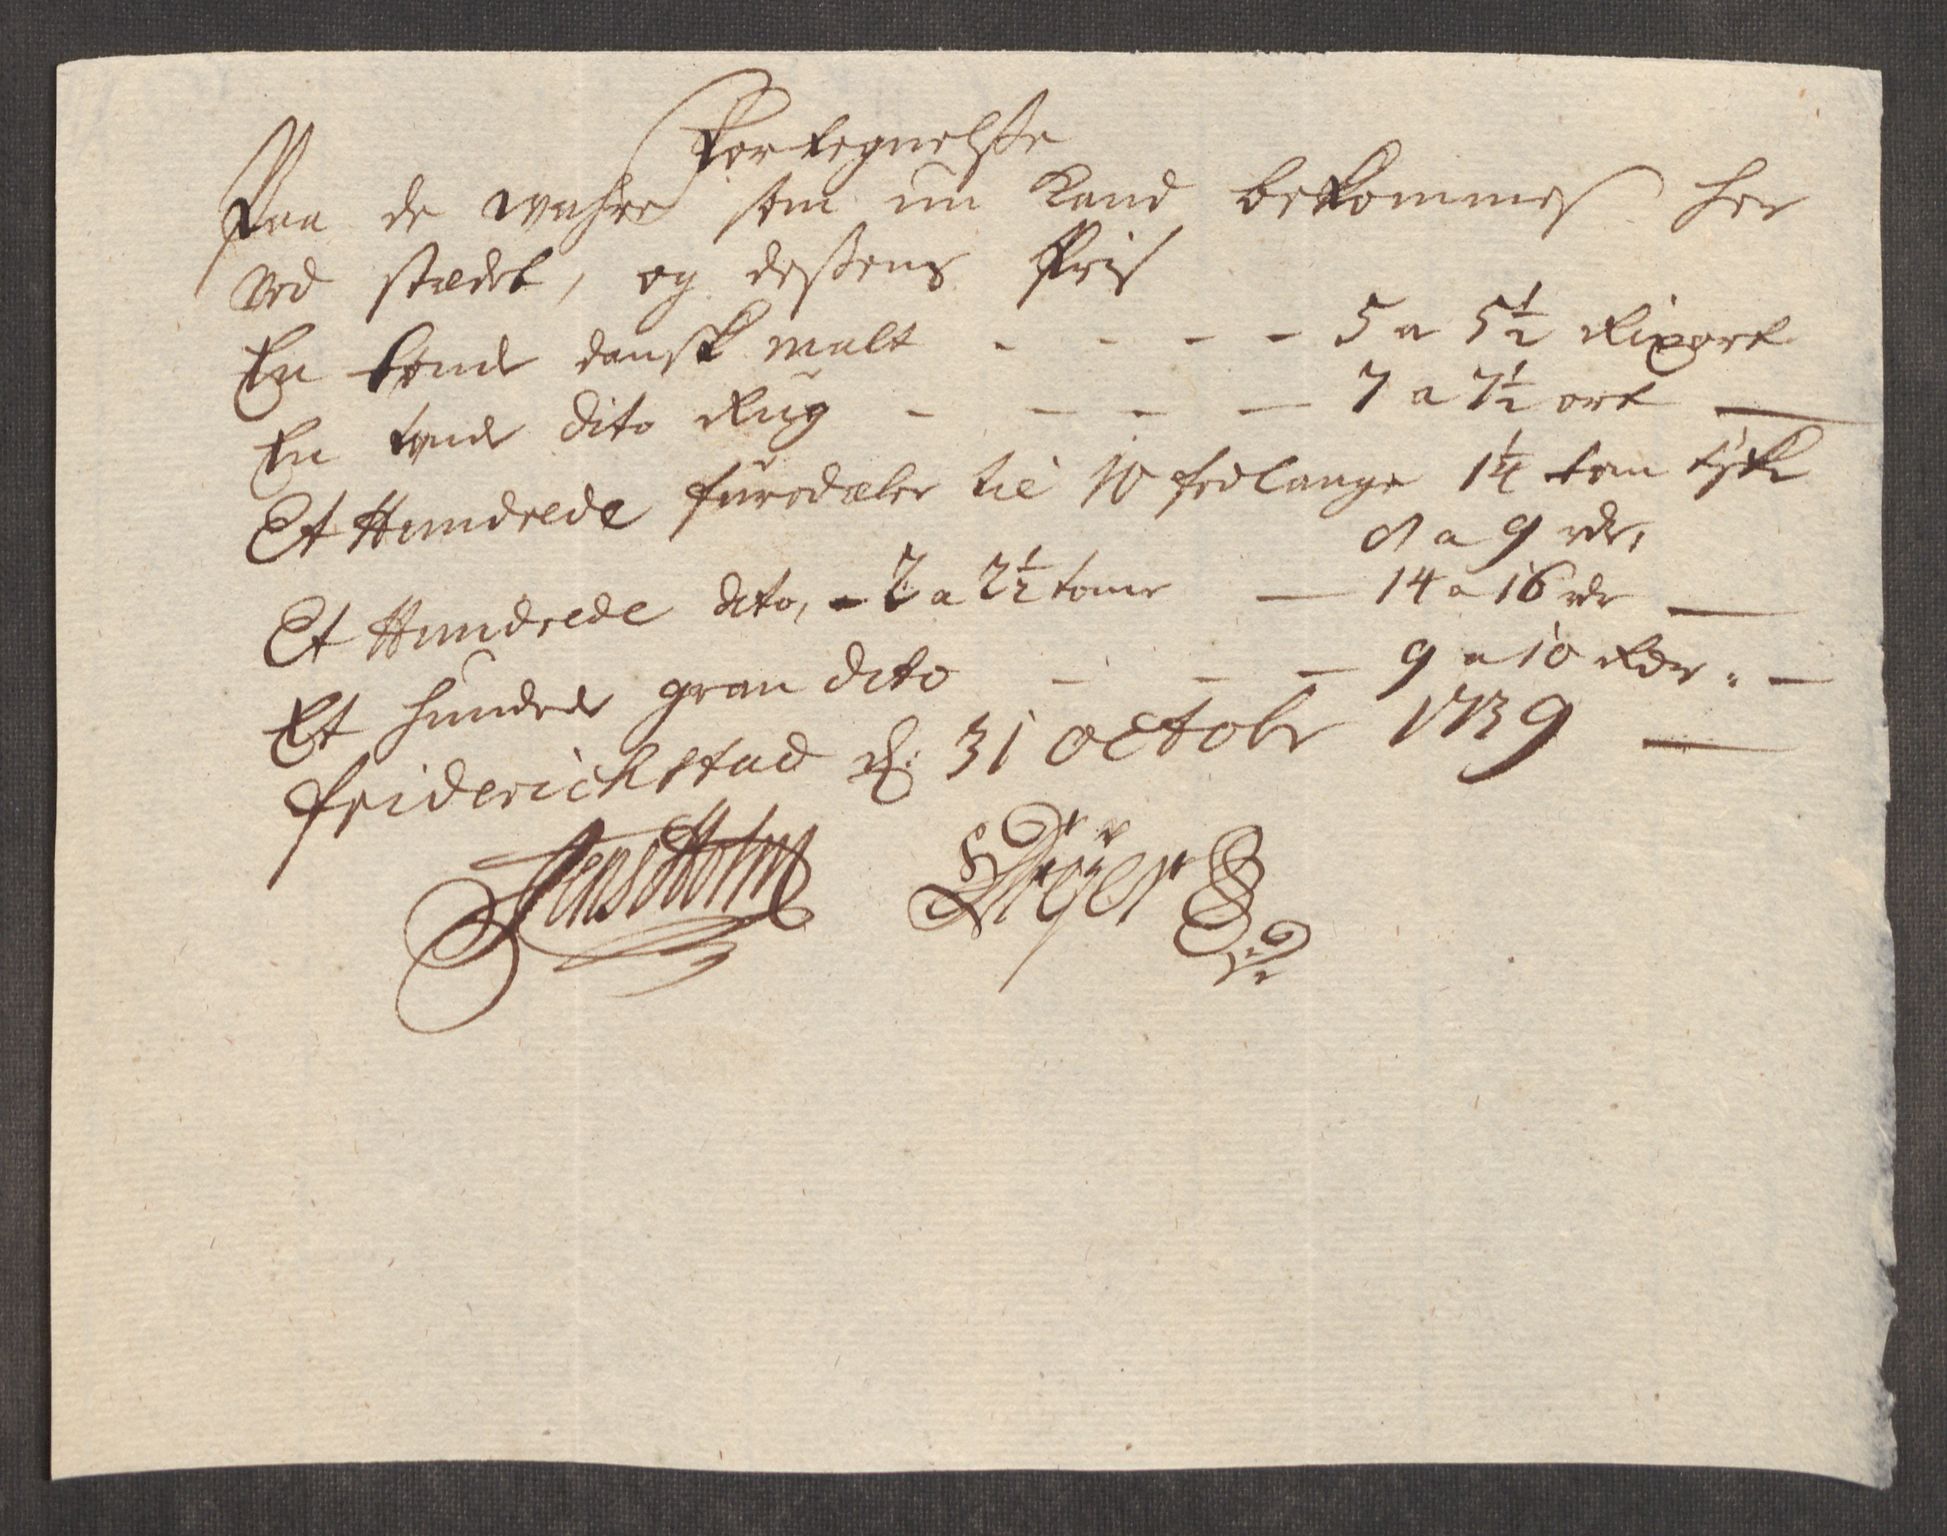 Fortegnelsse
Paa de wahre som nu kand bekommes her
ved stædet, og dessens Priis
En tønde dansk malt - - - - 5 a 5½ Rixort
En tønde dito Rug - - - - 7 a 7½ ort —
Et Hundrede furrdæler til 10 fodlange 1¼ tom tyk
8 a 9 rdr,
Et Hundrede dito, - 2 a 2½ tome — 14 a 16 rdr —
Et hundrede gran dito - - - 9 a 10 Rdr. —
Friderichstad d: 31 octobr 1739 —
Jens Holm Dreÿer